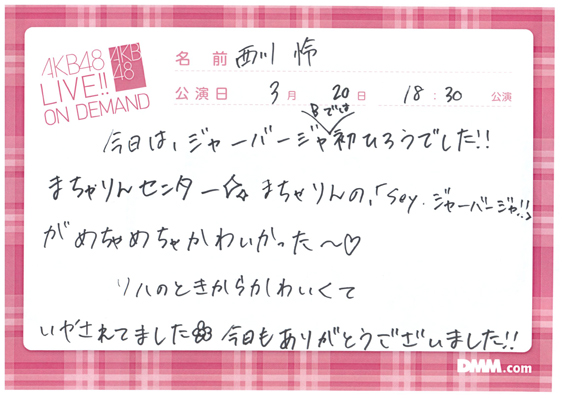 AKB48
LIVE!!
ON DEMAND
AKB
48
名前 西川 怜
公演日 3月 20日 18:30 公演
Bでは
今日は、ジャーバージャ初ひろうでした!!
まちゃりんセンター☆ まちゃりんの、「Sey. ジャーバージャ!!」
がめちゃめちゃかわいかった〜♡
リハのときからかわいくて
いやされてました 今日もありがとうございました!!
DMM.com